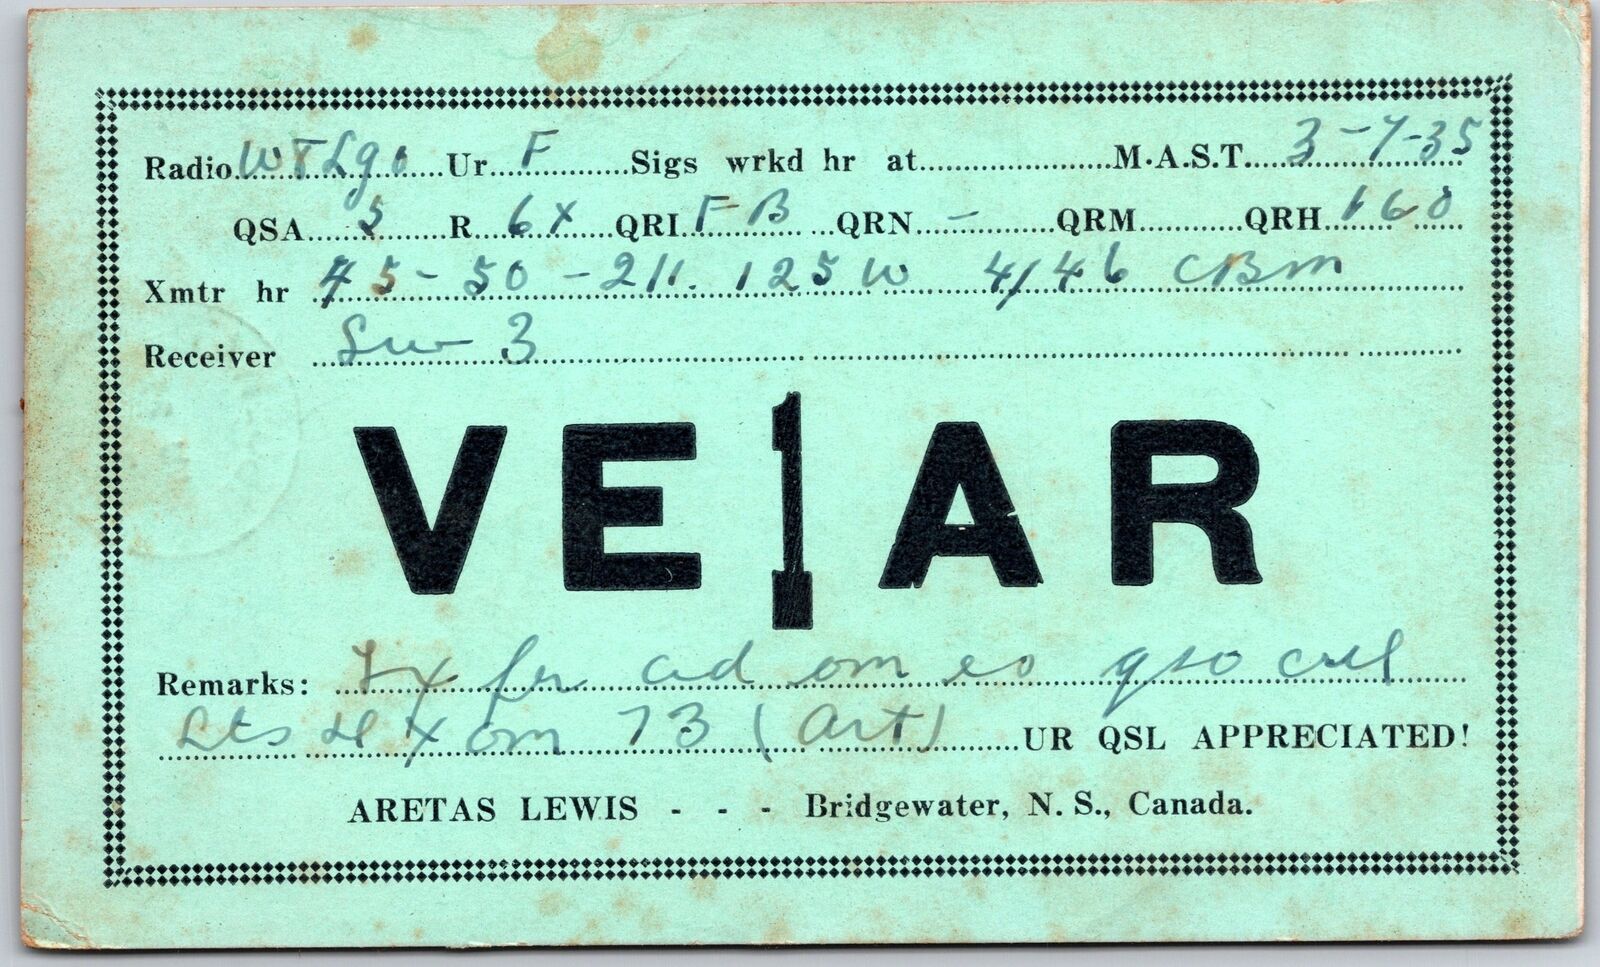 Radio Ur F Sigs wrkd hr at M.A.S.T. 3-7-35
QSA 5 R 6X QRI FB QRN - QRM QRH 160
Xmtr hr 45-50-211. 125 W 4/46 CBM
Receiver SW 3
VE1AR
Remarks: Tx fr cd om es qso cul
Lts om 73 (Art) UR QSL APPRECIATED!
ARETAS LEWIS - - - Bridgewater, N. S., Canada.